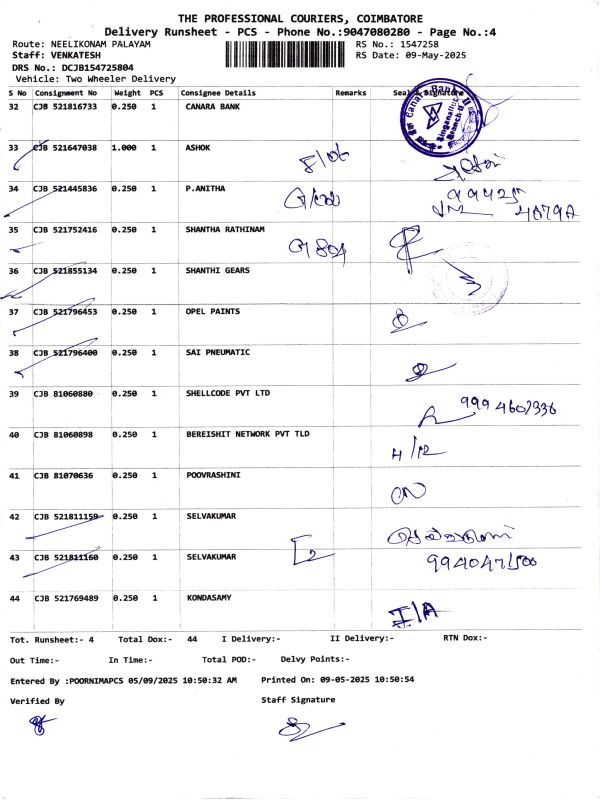 THE PROFESSIONAL COURIERS, COIMBATORE
Delivery Runsheet - PCS - Phone No.:9047080280 - Page No.:4
Route: NEELIKONAM PALAYAM RS No.: 1547258
Staff: VENKATESH RS Date: 09-May-2025
DRS No.: DCJB154725804
Vehicle: Two Wheeler Delivery
S No Consignment No Weight PCS Consignee Details Remarks Seal Signature
32 CJB 521816733 0.250 1 CANARA BANK
33 CJB 521647038 1.000 1 ASHOK
34 CJB 521445836 0.250 1 P.ANITHA
35 CJB 521752416 0.250 1 SHANTHA RATHINAM
36 CJB 521855134 0.250 1 SHANTHI GEARS
37 CJB 521796453 0.250 1 OPEL PAINTS
38 CJB 521796400 0.250 1 SAI PNEUMATIC
39 CJB 81060880 0.250 1 SHELLCODE PVT LTD
40 CJB 81060898 0.250 1 BEREISHIT NETWORK PVT TLD
4/12
41 CJB 81070636 0.250 1 POOVRASHINI
42 CJB 521811159 0.250 1 SELVAKUMAR
43 CJB 521811160 0.250 1 SELVAKUMAR
44 CJB 521769489 0.250 1 KONDASAMY
I/A
Tot. Runsheet:- 4 Total Dox:- 44 I Delivery:- II Delivery:- RTN Dox:-
Out Time:- In Time:- Total POD:- Delvy Points:-
Entered By :POORNIMAPCS 05/09/2025 10:50:32 AM Printed On: 09-05-2025 10:50:54
Verified By Staff Signature